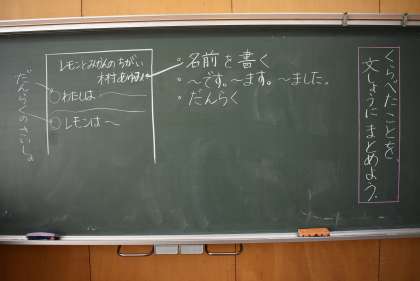 くらべたことを、
文しょうにまとめよう。
・名前を書く
・～です。～ます。～ました。
・だんらく
レモンとみかんのちがい
木村
わたしは
レモンは～
だんらくのさいしょ